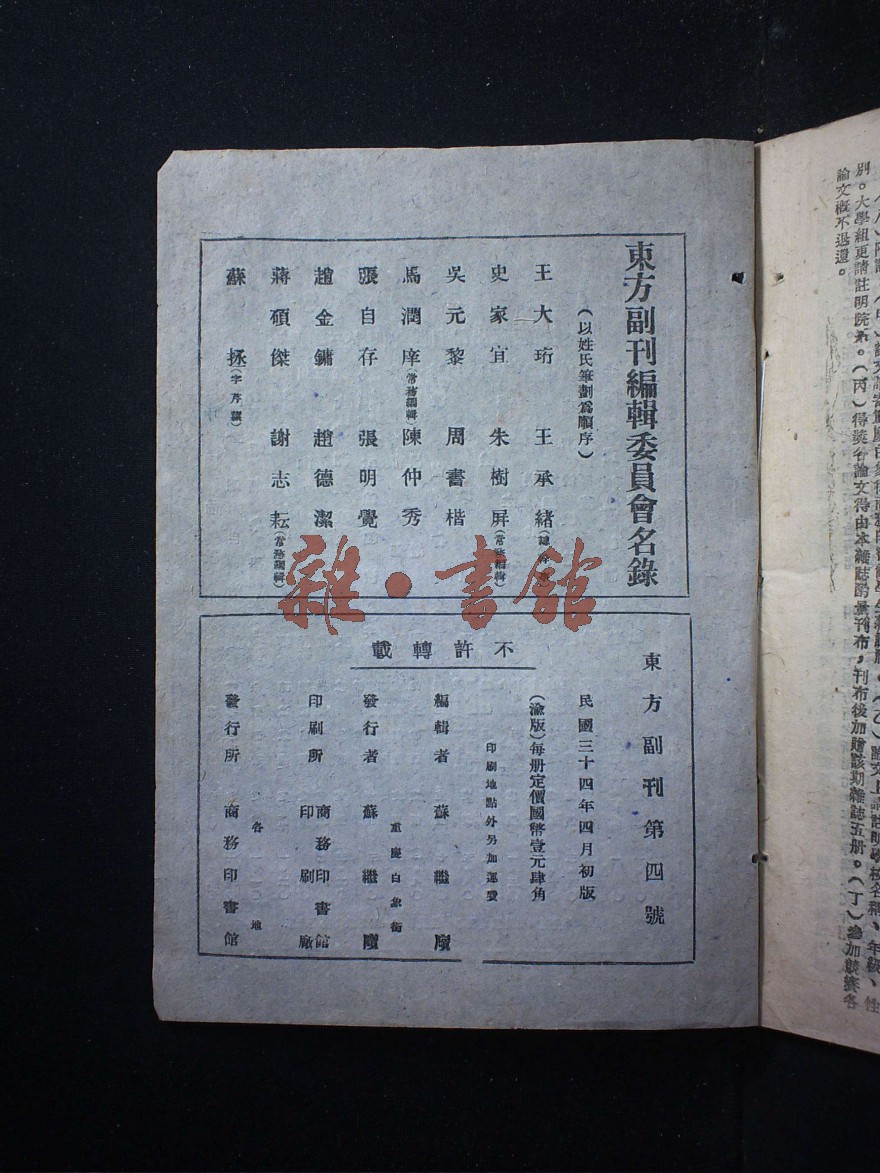 別。大學組更請註明院系。(丙)得獎各論文得由本雜誌酌量刊布,刊布後加贈該期雜誌五册。(丁)參加競賽各
論文概不退還。
東方副刊編輯委員會名錄
(以姓氏筆劃爲順序)
王大珩 王承緒
史家宜 朱樹屏(常務編輯)
吳元黎 周書楷
馬潤庠(常務編輯)陳仲秀
張自存 張明覺
趙金鏞 趙德潔
蔣碩傑 謝志耘(常務編輯)
蘇拯(字芹蓀)
東方副刊第四號
民國三十四年四月初版
(渝版)每册定價國幣壹元肆角
印刷地點外另加運費
不許轉載
編輯者 蘇繼廎
重慶白象街
發行者 蘇繼廎
印刷所 商務印書館印刷廠
各地
發行所 商務印書館
雜·書館